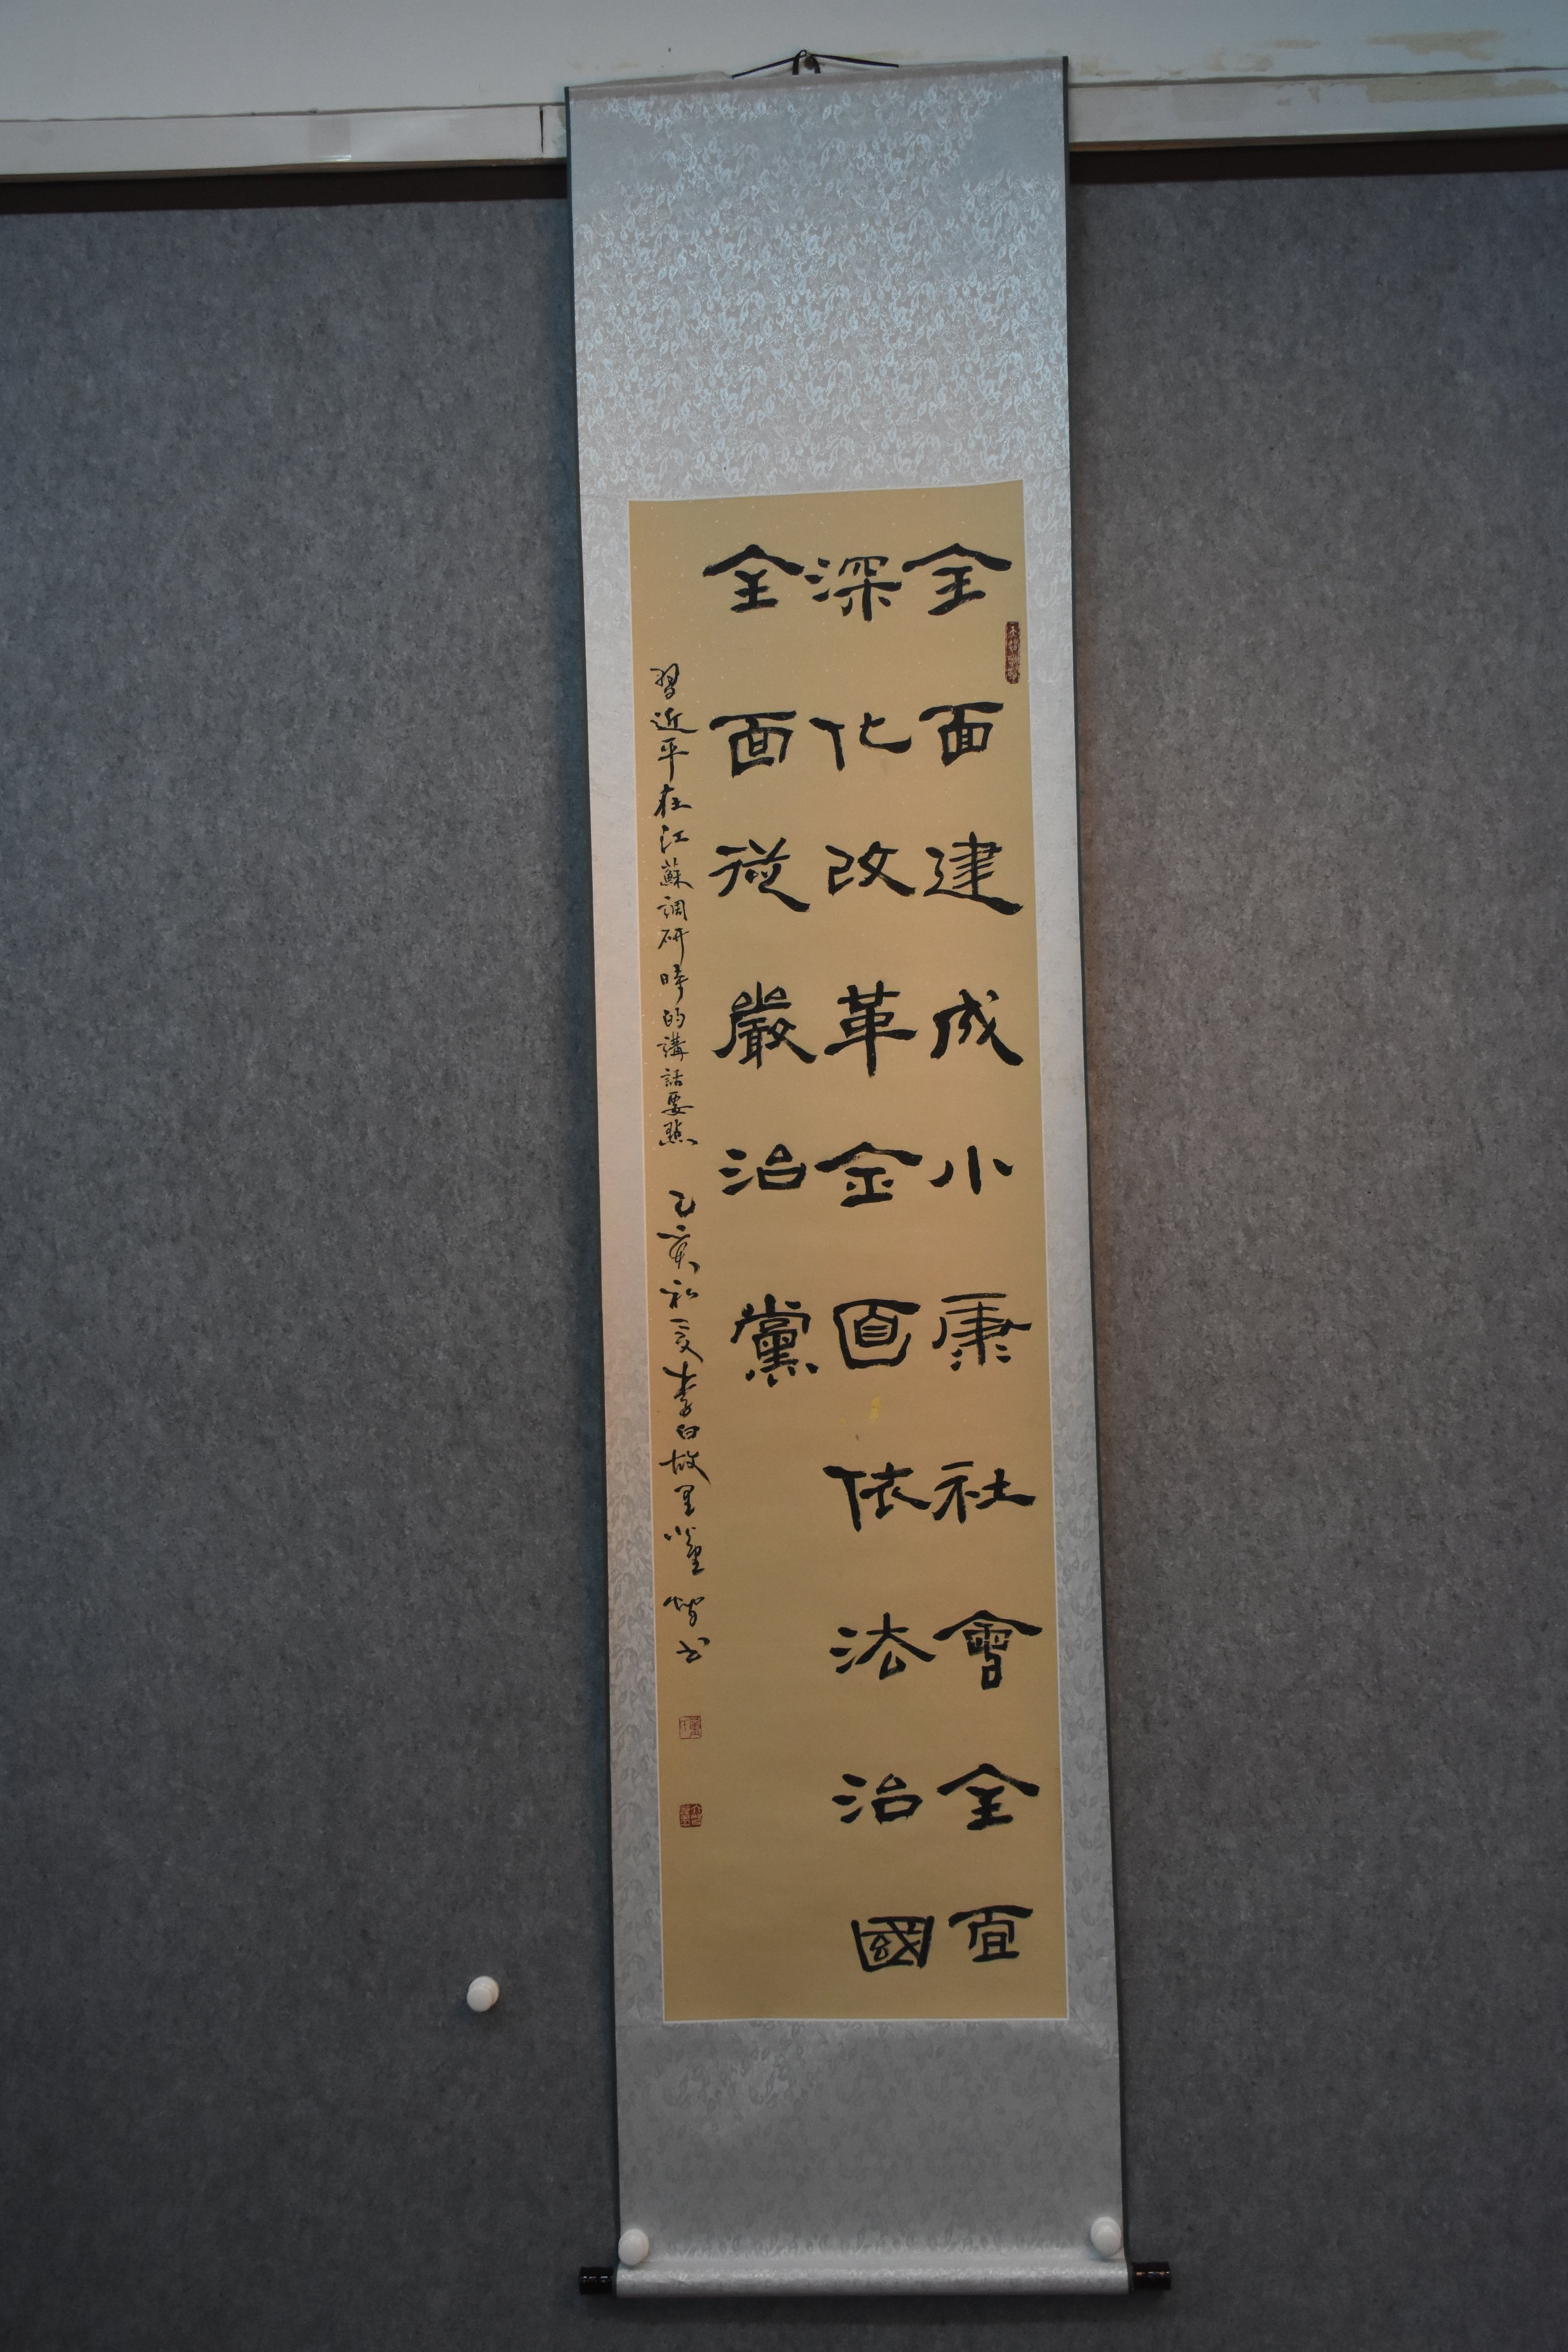 全面建成小康社會全面
深化改革全面依法治國
全面從嚴治黨
習近平在江蘇調研時的講話要點 乙亥初夏李白故里 書